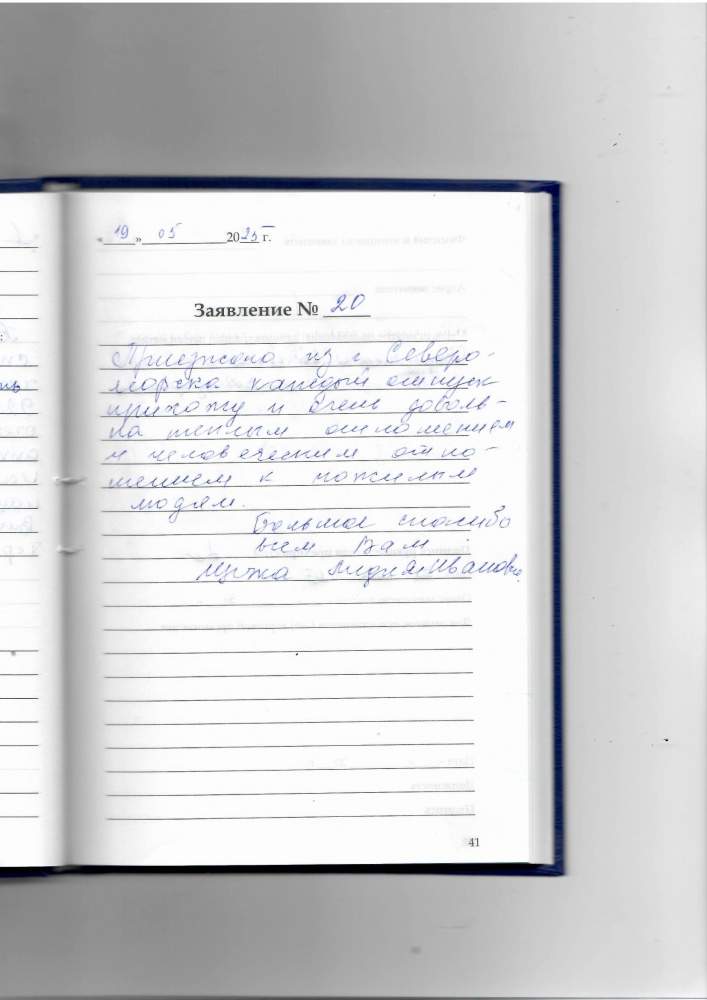 « 19 » 05 2025 г.
Заявление № 20
Приезжаю из г. Северо-
морска каждый отпуск
прихожу и очень доволь-
на теплым отношением
и человеческим отно-
шением к пожилым
людям.
Большое спасибо
всем Вам
Лидия Ивановна
41